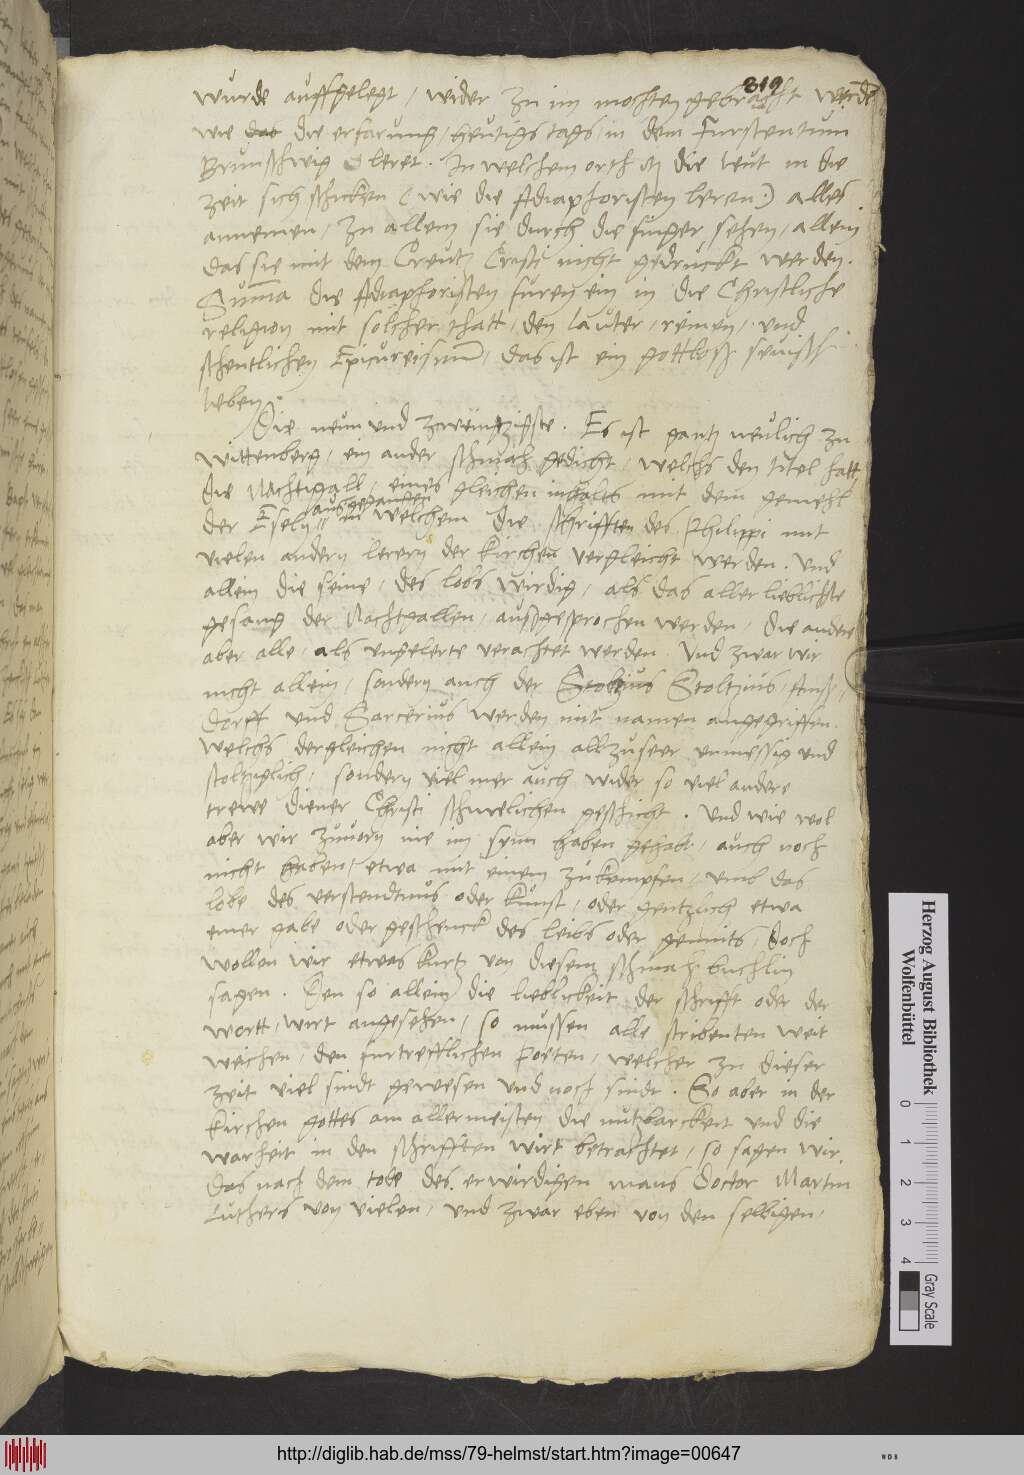 319
wurde auffgelegt / wider zu im mochten gebracht werde
wie das die erfarung / heutigs tags / in dem Furstentum
Brunschwig leret. In welchem orth itz die leut in die
zeit sich schicken (wie die Adiaphoristen leren) alles
annemen / zu allem sie durch die finger sehen / allein
das sie mit dem Creutz Cristi nicht gedruckt werden.
Summa die Adiaphoristen furen ein in die Christliche
religion mit solcher thatt / den lauter / reinen / und
schentlichen Epicureismum / das ist ein gottloss sewisch
leben.
Die neun und zweintzigste. Es ist gantz neulich zu
Wittenberg / ein ander schmach gedicht / welchs den titel hatt
die Nachtigall / eines gleichen inhalts mit dem gemehl
ausgegangen
der Eseln // in welchem die schrifften des Philippi mit
vielen andern lerern der kirchen vergleicht werden. Und
allein die seine / des lobs wirdig / als das aller lieblichste
gesang der Nachtgallen / aussgesprochen werden / die andere
aber alle / als ungelerte verachtet werden. Und zwar wir
nicht allein / sondern auch der Stoltzius Stoltzius /
dorff und Sarcerius werden mit namen angegriffen.
Welchs dergleichen nicht allein all zu seer unmessig und
stoltziglich / sondern viel mer auch wider so viel andere
trewe diener Christi schmelichen geschicht. Und wie wol
aber wir zuvorn nie im synn haben gehabt / auch noch
nicht haben / etwa mit einem zu kempfen / umb das
lobe des verstendtnus oder kunst / oder gentzlich etwa
einer gabe oder geschenck des leibs oder gemuts / Doch
wollen wir etwas kurtz von diesem schmach buchlin
sagen. Den so allein die lieblickeit der schrifft oder der
wortt / wirt angesehen / so mussen alle scribenten weit
weichen / den furtrefflichen Poeten / welcher zu dieser
zeit viel sindt gewesen und noch sindt. So aber in der
kirchen gottes am allermeisten die nutzbarckeit und die
warheit in den schrifften wirt betrachtet / so sagen wir
das nach dem tode des erwirdigen mans Doctor Martin
Luthers von vielen / und zwar eben von den selbigen /
Herzog August Bibliothek
Wolfenbüttel
0 1 2 3 4
Gray Scale
http://diglib.hab.de/mss/79-helmst/start.htm?image=00647
WDB